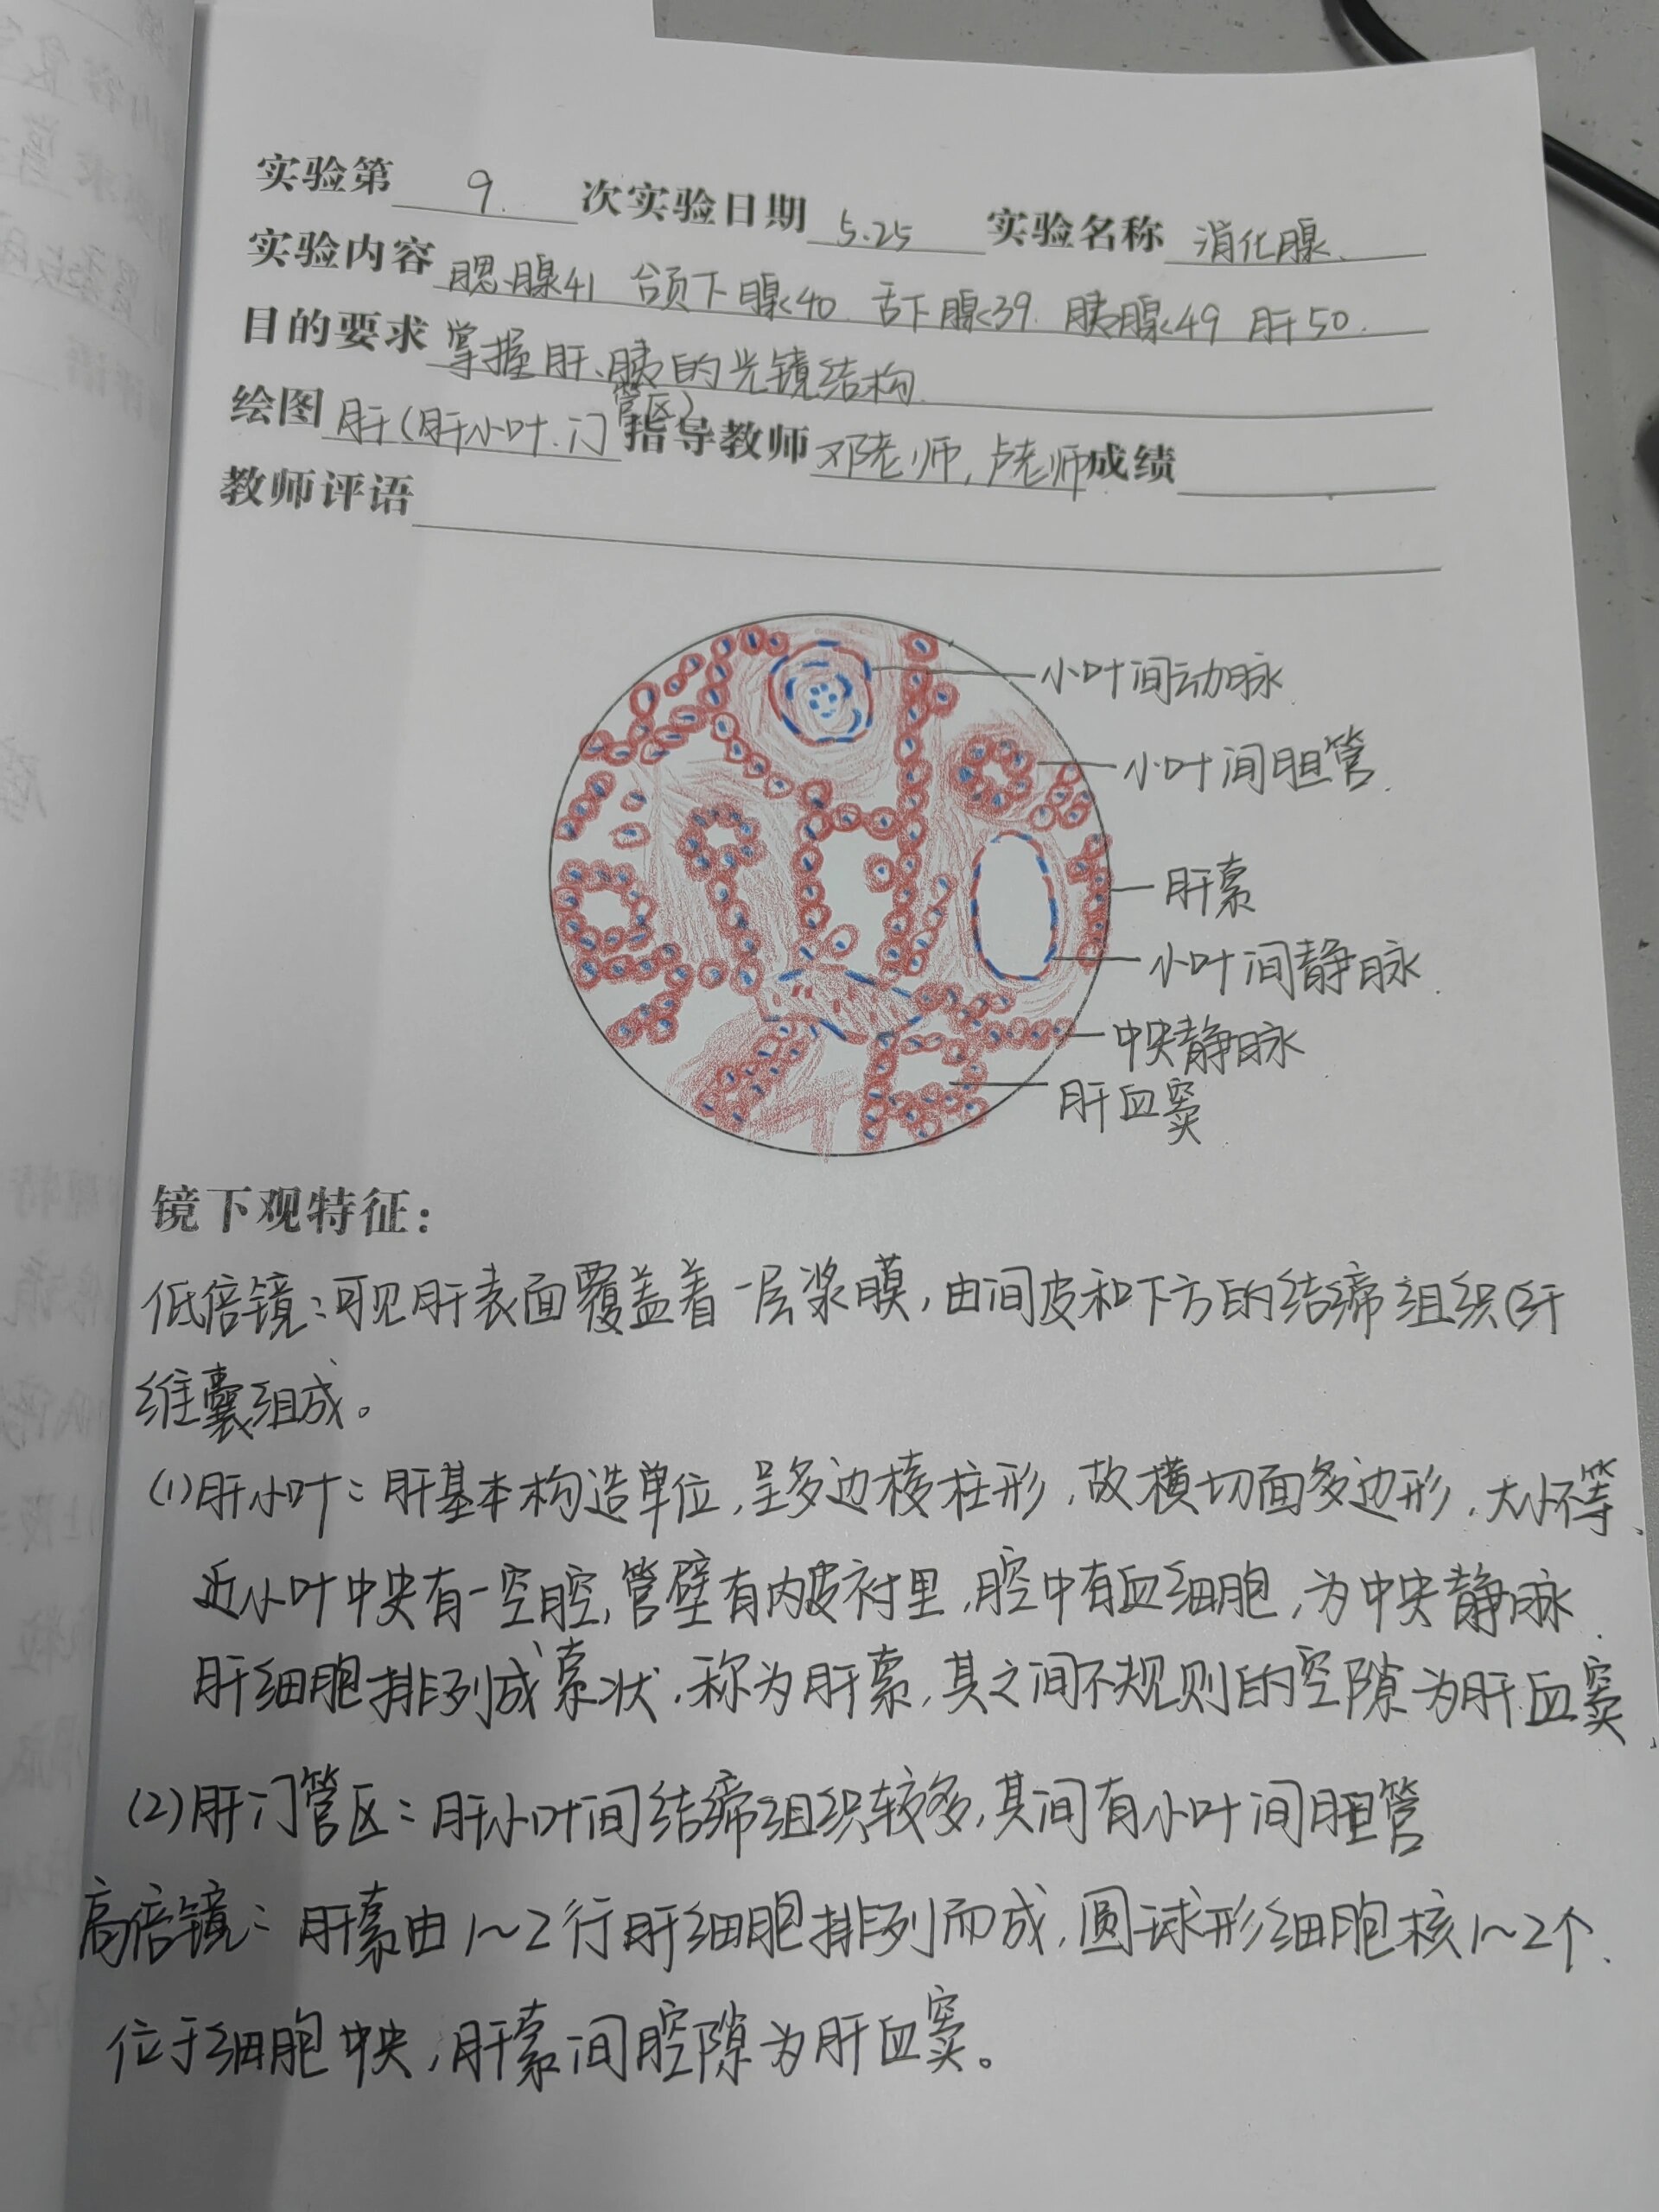 实验第 9. 次实验日期 5.25 实验名称 消化腺.
实验内容 腮腺41 颌下腺40. 舌下腺39. 胰腺49 肝50.
目的要求 掌握肝、胰的光镜结构.
绘图 肝(肝小叶.门管区) 指导教师 邓老师,卢老师 成绩
教师评语
小叶间动脉
小叶间胆管.
肝索
小叶间静脉.
中央静脉
肝血窦
镜下观特征:
低倍镜:可见肝表面覆盖着一层浆膜,由间皮和下方的结缔组织(纤
维囊组成。
(1)肝小叶:肝基本构造单位,呈多边棱柱形,故横切面多边形,大小不等.
近小叶中央有一空腔,管壁有内皮衬里,腔中有血细胞,为中央静脉.
肝细胞排列成索状,称为肝索,其之间不规则的空隙为肝血窦.
(2)肝门管区:肝小叶间结缔组织较多,其间有小叶间胆管
高倍镜:肝索由1~2行肝细胞排列而成,圆球形细胞核1~2个.
位于细胞中央,肝索间腔隙为肝血窦。